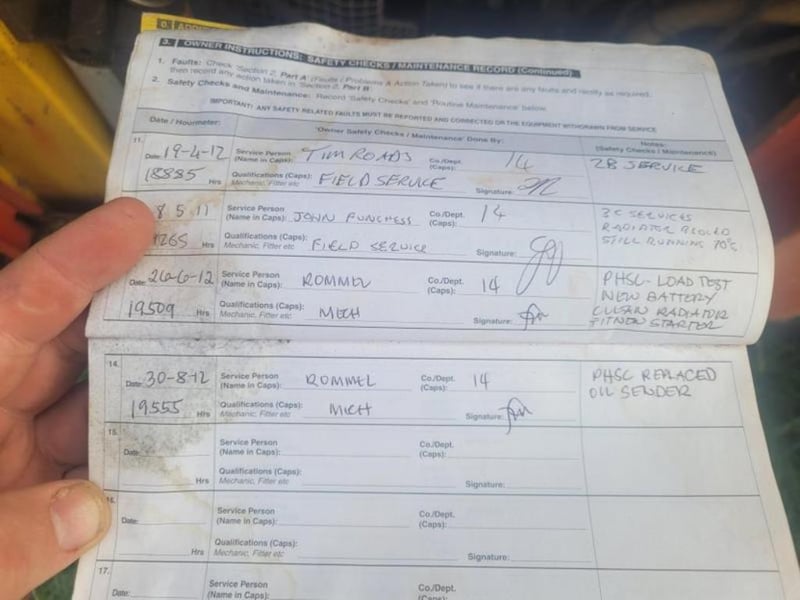 3. OWNER INSTRUCTIONS: SAFETY CHECKS / MAINTENANCE RECORD (Continued)
1. Faults: Check 'Section 2, Part A' (Faults / Problems & Action Taken) to see if there are any faults and rectify as required,
then record any action taken in 'Section 2, Part B'
2. Safety Checks and Maintenance: Record 'Safety Checks' and 'Routine Maintenance' below.
IMPORTANT: ANY SAFETY RELATED FAULTS MUST BE REPORTED AND CORRECTED OR THE EQUIPMENT WITHDRAWN FROM SERVICE
Date / Hourmeter: 'Owner Safety Checks / Maintenance' Done By: Notes:
(Safety Checks / Maintenance)
11.
Date: 19-4-12 Service Person (Name in Caps): TIM ROADS Co./Dept. (Caps): 14 2B SERVICE
18885 Hrs Qualifications (Caps): Mechanic, Fitter etc FIELD SERVICE Signature:
8 5 11 Service Person (Name in Caps): JOHN Co./Dept. (Caps): 14 SERVICES
RADIATOR
STILL RUNNING
265 Hrs Qualifications (Caps): Mechanic, Fitter etc FIELD SERVICE Signature:
Date: 26-6-12 Service Person (Name in Caps): ROMMEL Co./Dept. (Caps): 14 PHSC - LOAD TEST
NEW BATTERY
CLEAN RADIATOR
FITNEW STARTER
19509 Hrs Qualifications (Caps): Mechanic, Fitter etc MECH Signature:
14.
Date: 30-8-12 Service Person (Name in Caps): ROMMEL Co./Dept. (Caps): 14 PHSC REPLACED
OIL SENDER
19555 Hrs Qualifications (Caps): Mechanic, Fitter etc MECH Signature:
15.
Date: Service Person (Name in Caps): Co./Dept. (Caps):
Hrs Qualifications (Caps): Mechanic, Fitter etc Signature:
16.
Date: Service Person (Name in Caps): Co./Dept. (Caps):
Hrs Qualifications (Caps): Mechanic, Fitter etc Signature:
17.
Date: Service Person (Name in Caps): Co./Dept.